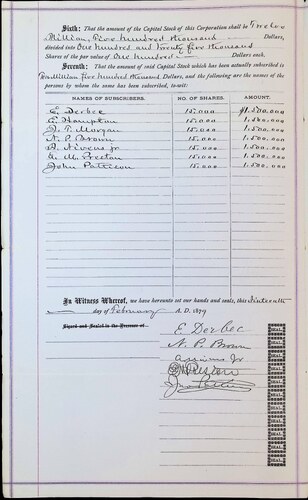 Sixth: That the amount of the Capital Stock of this Corporation shall be Twelve
Million, Five hundred thousand Dollars,
divided into One hundred and Twenty five thousand
Shares of the par value of One hundred Dollars each.
Seventh: That the amount of said Capital Stock which has been actually subscribed is
Ten Million five hundred thousand Dollars, and the following are the names of the
persons by whom the same has been subscribed, to-wit:
NAMES OF SUBSCRIBERS. NO. OF SHARES. AMOUNT.
E. Derbec 15.000 $1.500.000
C. Hampton 15.000 1.500.000
J. T. Morgan 15.000 1.500.000
N. P. Brown 15.000 1.500.000
A. Nivens jr 15.000 1.500.000
M. Preston 15.000 1.500.000
John Patticon 15.000 1.500.000
In Witness Whereof, we have hereunto set our hands and seals, this
day of February A. D. 1879
Signed and Sealed in the Presence of
E Derbec SEAL
N. P. Brown SEAL
SEAL
Preston SEAL
SEAL
SEAL
SEAL
SEAL
SEAL